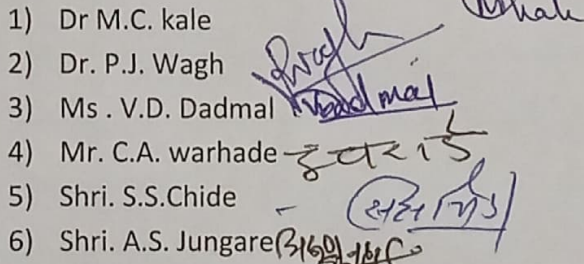 1) Dr M.C. kale
2) Dr. P.J. Wagh Wagh
3) Ms . V.D. Dadmal Vdadmal
4) Mr. C.A. warhade
5) Shri. S.S.Chide
6) Shri. A.S. Jungare